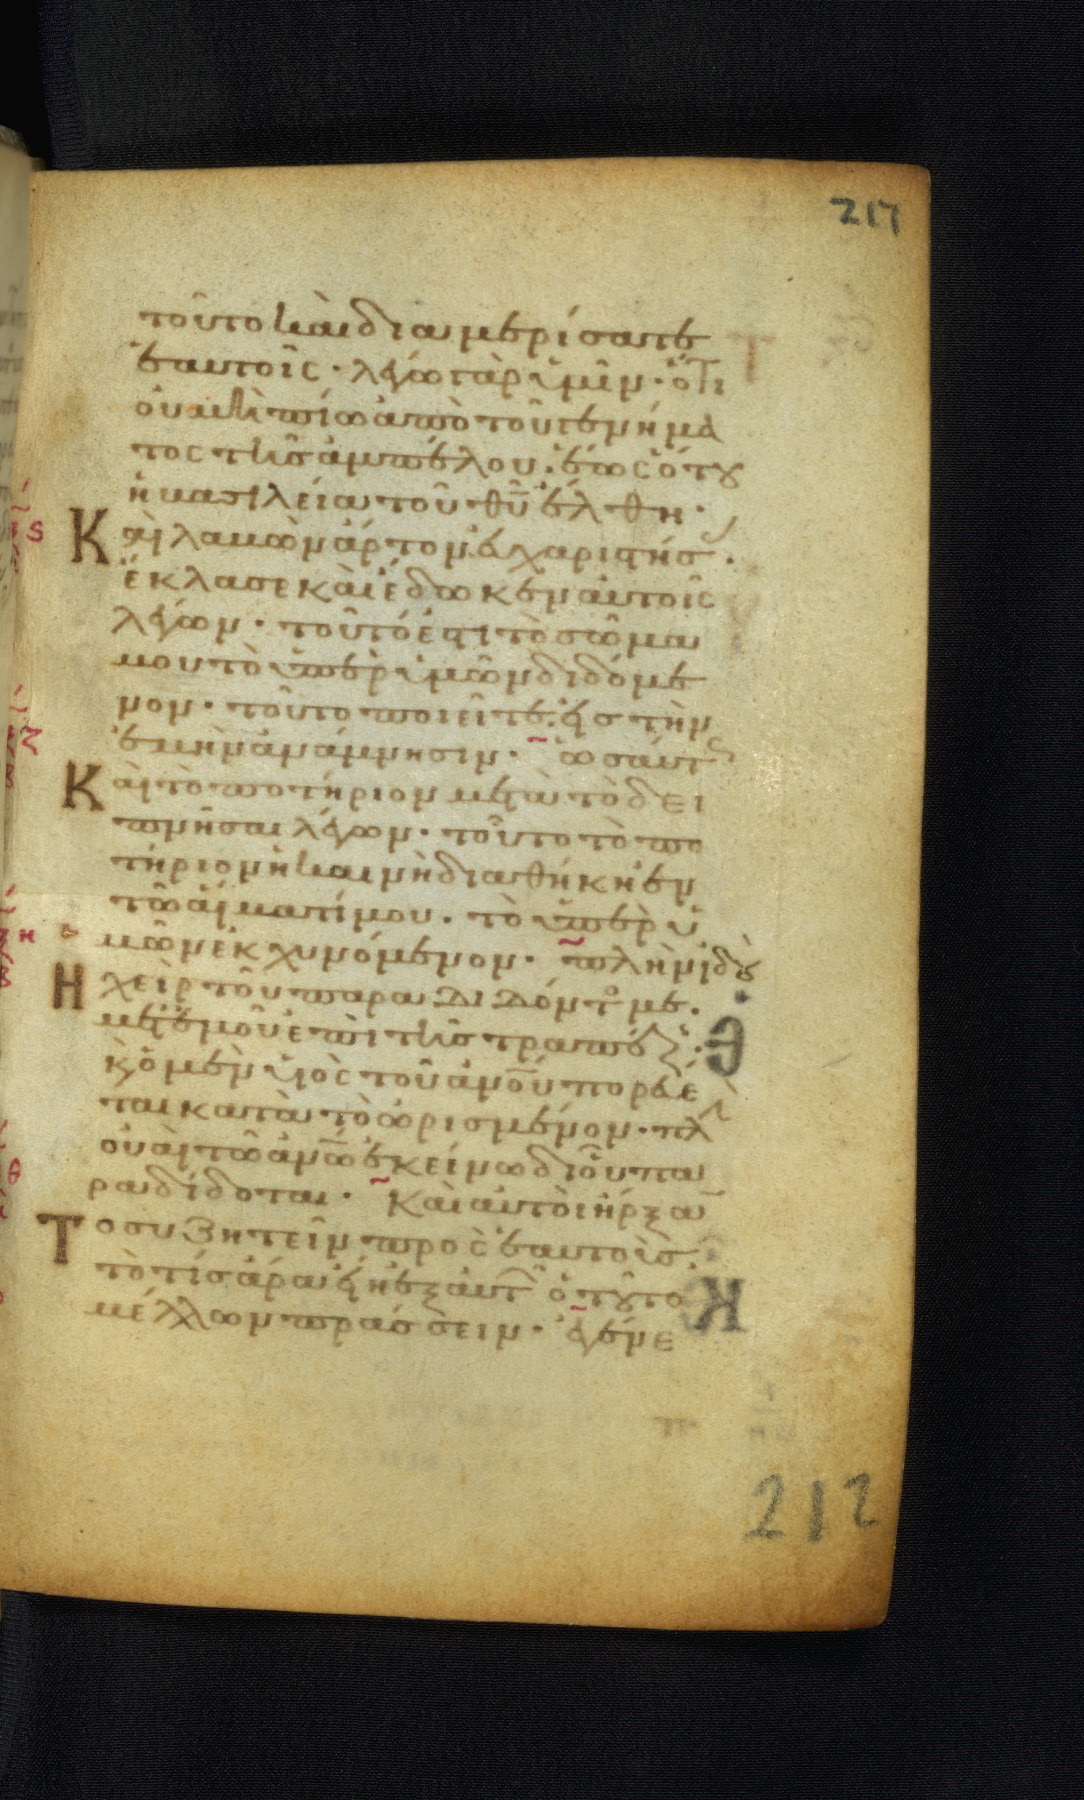 217
τοῦτο καὶ διαμερίσατε
ἑαυτοῖς· λέγω γὰρ ὑμῖν· ὅτι
οὐ μὴ πίω ἀπὸ τοῦ γενήμα
τος τῆς ἀμπέλου. ἕως ὅτου
ἡ βασιλεία τοῦ θυ ἔλθη·
Καὶ λαβὼν ἄρτον εὐχαριστήσ.
ἔκλασε καὶ ἔδωκεν αὐτοῖς
λέγων· τοῦτό ἐστι τὸ σῶμα
μου τὸ ὑπὲρ ὑμῶν διδόμε
νον· τοῦτο ποιεῖτε. εἰς τὴν
ἐμὴν ἀνάμνησιν· ὡσαύτ
Καὶ τὸ ποτήριον μετὰ τὸ δει
πνῆσαι λέγων· τοῦτο τὸ πο
τήριον ἡ καινὴ διαθήκη ἐν
τῶ αἵματί μου. τὸ ὑπὲρ ὑ
μῶν ἐκχυνόμενον· πλὴν ἰδοὺ
Η χεὶρ τοῦ παραδιδόντο με.
μετ' ἐμοῦ ἐπὶ τῆς τραπέζ.
κ ὁ μὲν υἱὸς τοῦ ανου πορεύε
ται κατὰ τὸ ὡρισμένον· πλ
οὐαὶ τῶ ανω ἐκείνω δι' οὗ πα
ραδίδοται· Καὶ αὐτοὶ ἤρξαν
Το συζητεῖν πρὸς ἑαυτοὺς.
τὸ τίς ἄρα εἴη ἐξ αὐτ ὁ τοῦτο
μέλλων πράσσειν· ἐγένε
212